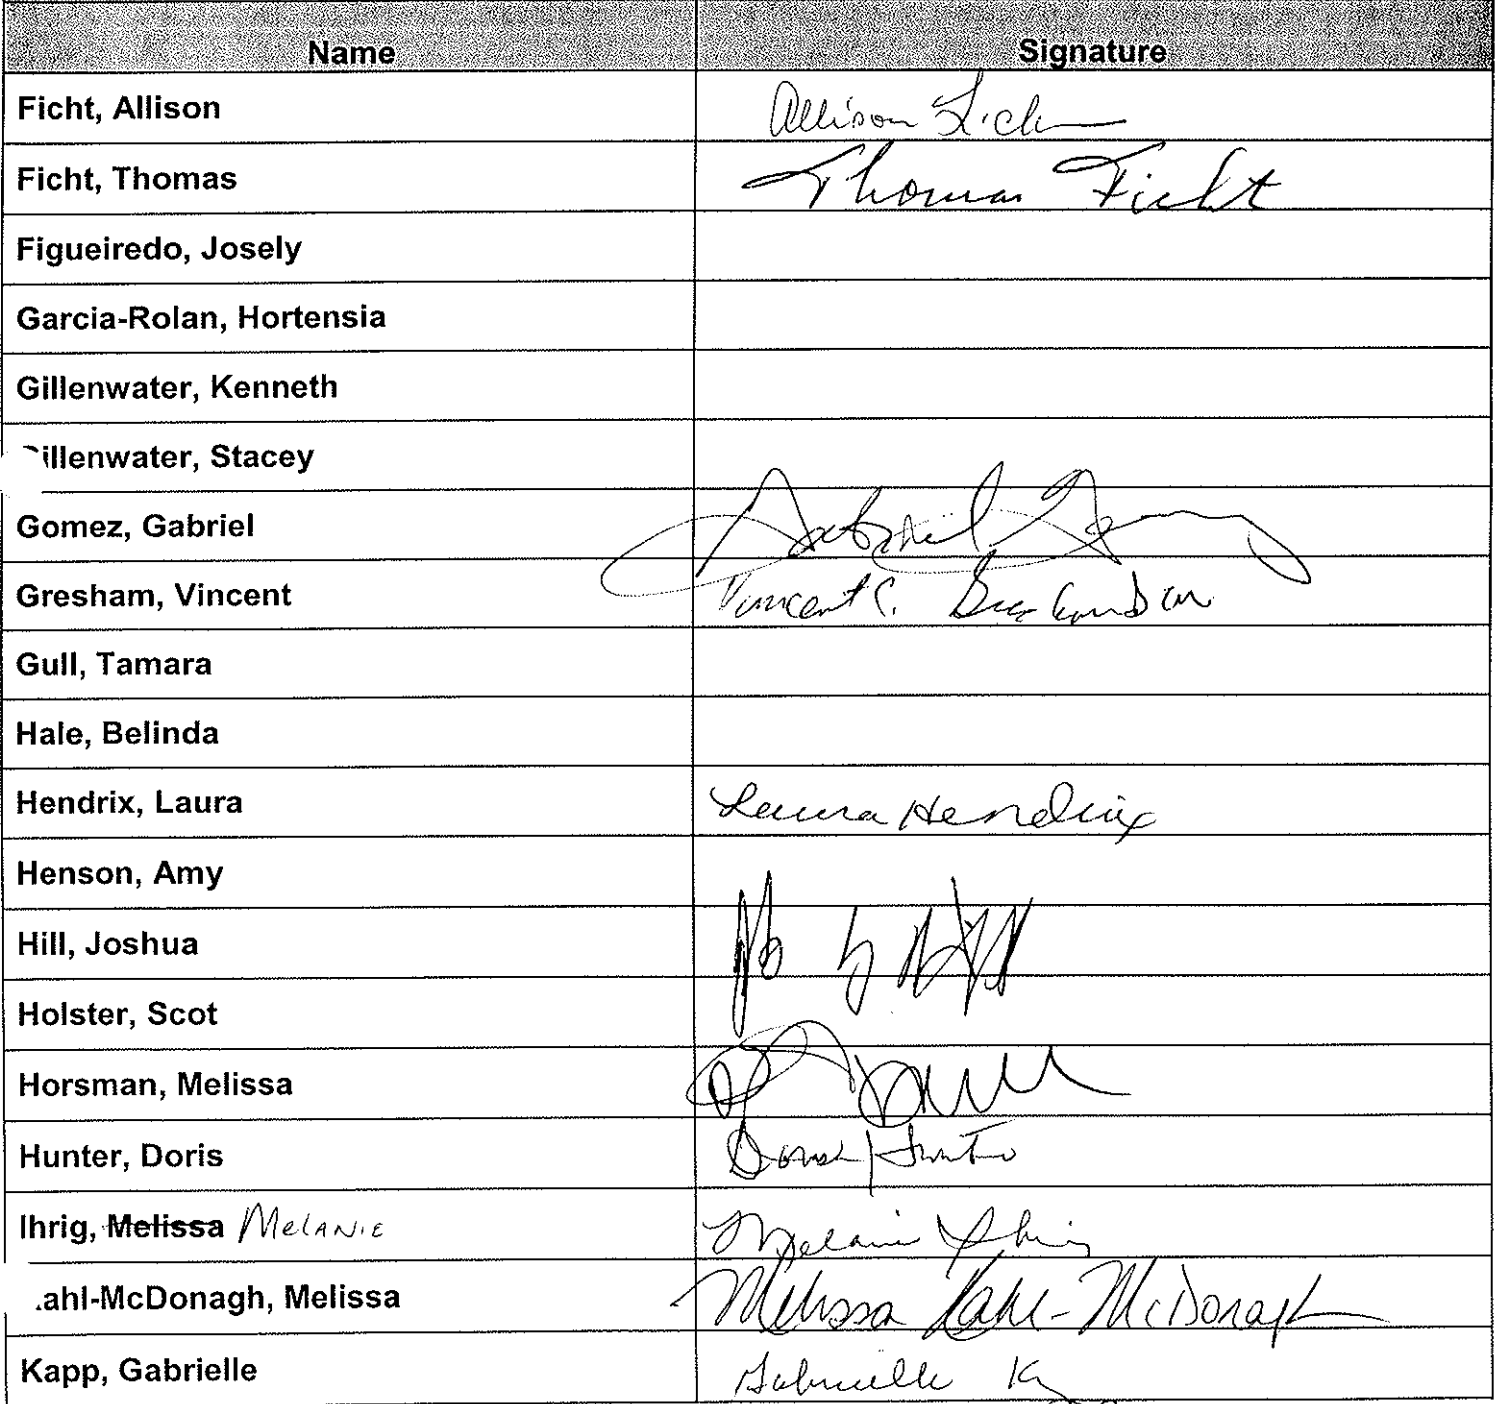 Name Signature
Ficht, Allison Allison Ficht
Ficht, Thomas Thomas Ficht
Figueiredo, Josely
Garcia-Rolan, Hortensia
Gillenwater, Kenneth
illenwater, Stacey
Gomez, Gabriel Gabriel Gomez
Gresham, Vincent Vincent C.
Gull, Tamara
Hale, Belinda
Hendrix, Laura Laura Hendrix
Henson, Amy
Hill, Joshua
Holster, Scot
Horsman, Melissa
Hunter, Doris Doris Hunter
Ihrig, Melissa MELANIE Melanie Ihrig
ahl-McDonagh, Melissa Melissa Kahl-McDonagh
Kapp, Gabrielle Gabrielle K